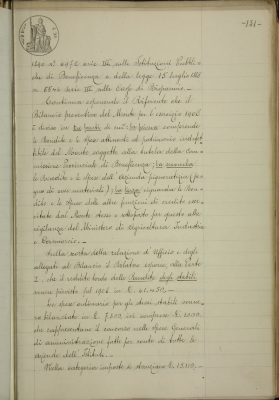 -121-
1890 n. 6972 serie III sulle Istituzioni Pubbli=
che di Beneficenza e della legge 15 Luglio 1888
n. 5546 serie III sulle Casse di Risparmio.-
Continua esponendo il Referente che il
Bilancio preventivo del Monte per l'esercizio 1906
è diviso in tre parti di cui: la prima comprende
le Rendite e le Spese attinenti al patrimonio
del Monte soggetto alla tutela della Com=
missione Provinciale di Beneficenza; la seconda
le Rendite e le Spese dell'Azienda Pignoratizia
; la terza riguarda le Ren=
dite e le Spese delle altre funzioni di credito eser=
citate dal Monte stesso e sottoposto per questo alla
vigilanza del Ministero di Agricoltura Industria
e Commercio.-
Sulla scorta della relazione di Ufficio e degli
allegati al Bilancio il Relatore espone, alla Parte
I, che il reddito lordo delle Rendite degli stabili
venne previsto pel 1906 in £. 61.450.-
Le spese per gli stessi stabili venne=
ro bilanciate in £. 7.200 ivi comprese £. 2000
che rappresentano il concorso nelle Spese Generali
di amministrazione fatte per conto di tutte le
aziende dell'Istituto.-
Nella categoria imposte si stanziano £. 15110.-